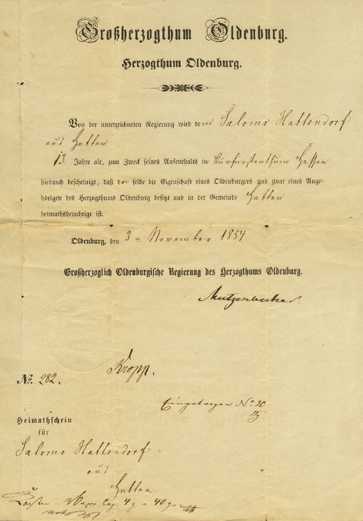 Großherzogthum Oldenburg.
Herzogthum Oldenburg.
Von der unterzeichneten Regierung wird dem Salomo Hattendorf
aus Hatten
13 Jahre alt, zum Zweck seines Aufenthalts in Kurfürstenthum Hessen
hiedurch bescheinigt, daß derselbe die Eigenschaft eines Oldenburgers und zwar eines Ange-
hörigen des Herzogthums Oldenburg besitzt und in der Gemeinde Hatten
heimathsberechtigt ist.
Oldenburg, den 3 November 1854
Großherzoglich Oldenburgische Regierung des Herzogthums Oldenburg.
Mutzenbecher
Kropp.
No. 282.
Eingetragen No 20
Heimathschein
für
Salomo Hattendorf
aus
Hatten